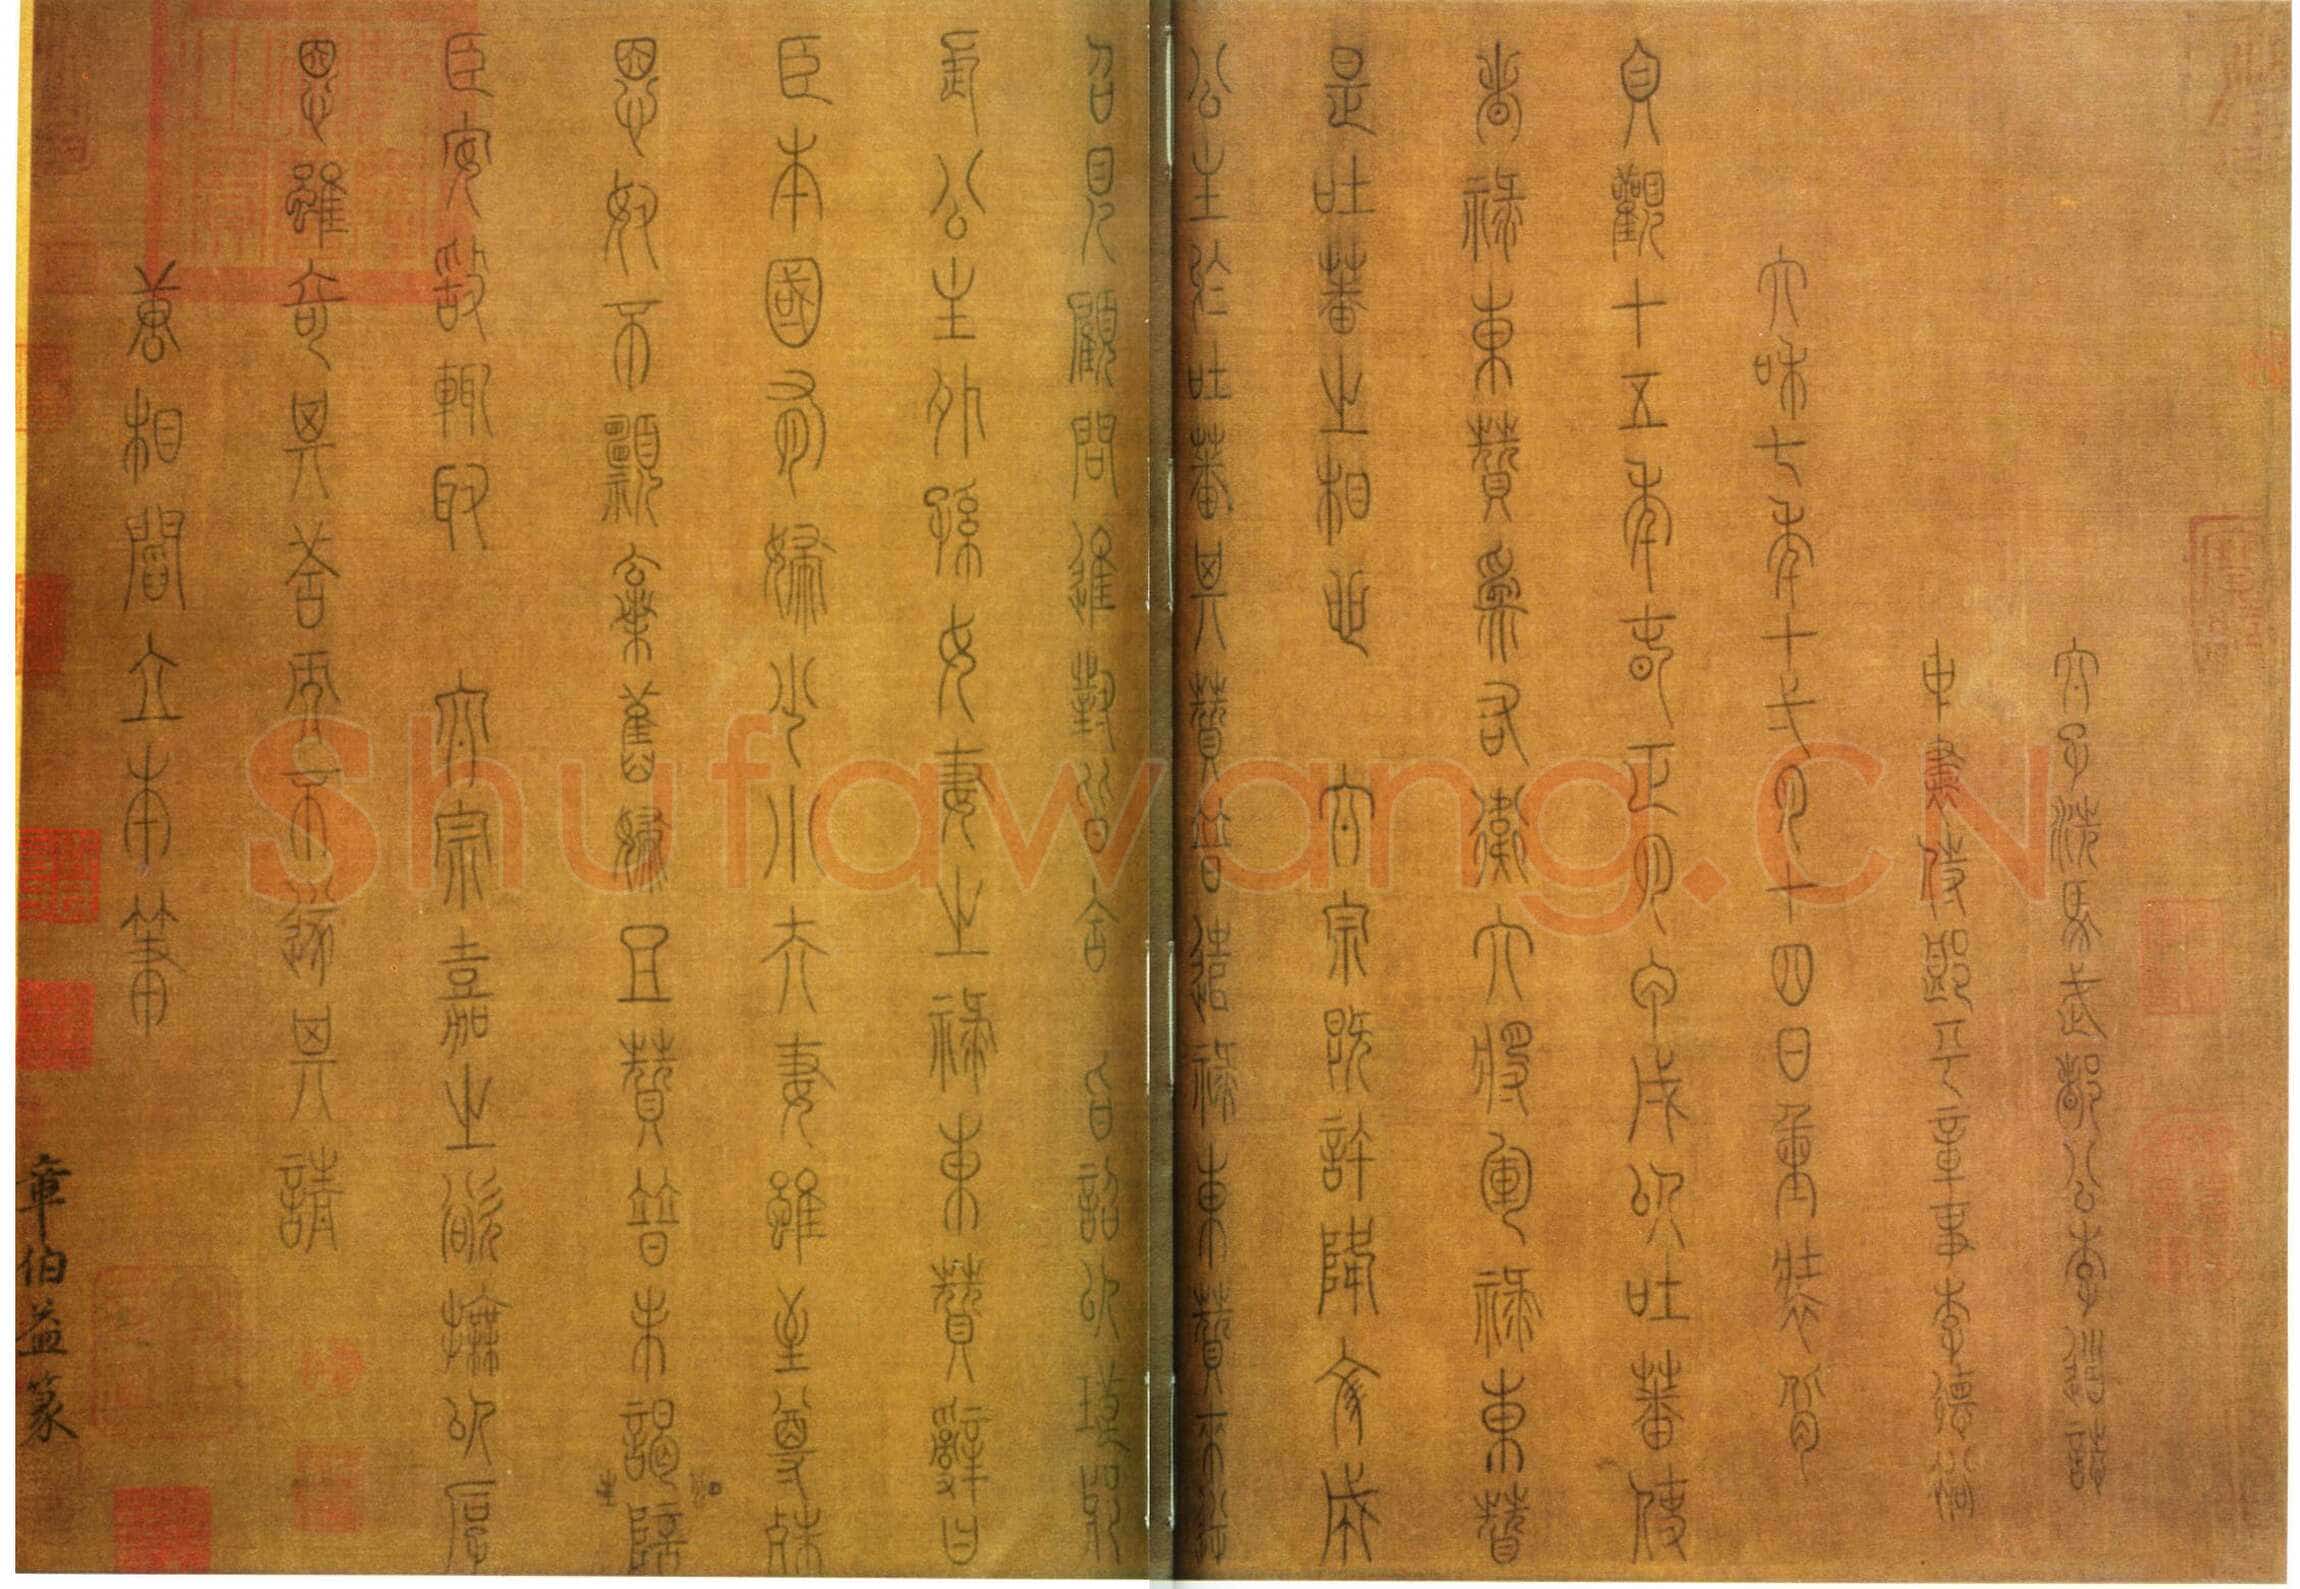 太子洗馬武都公李道誌
中書侍郎平章事李德裕
大和七年十一月十四日重裝背
貞觀十五年春正月甲戌以吐蕃使
者祿東贊爲右衛大將軍祿東贊
是吐蕃之相也 太宗既許降文成
公主於吐蕃其贊普遣祿東贊來逆
召見顧問進對皆合 旨詔以琅邪
長公主外孫女妻之祿東贊辭曰
臣本國有婦少小夫妻雖至尊殊
恩奴不願棄舊婦且贊普未謁公主陪
臣安敢輒取 太宗嘉之欲撫以厚
恩雖奇其答而不遂其請
唐相閻立本筆
章伯益篆
Shufawang.CN